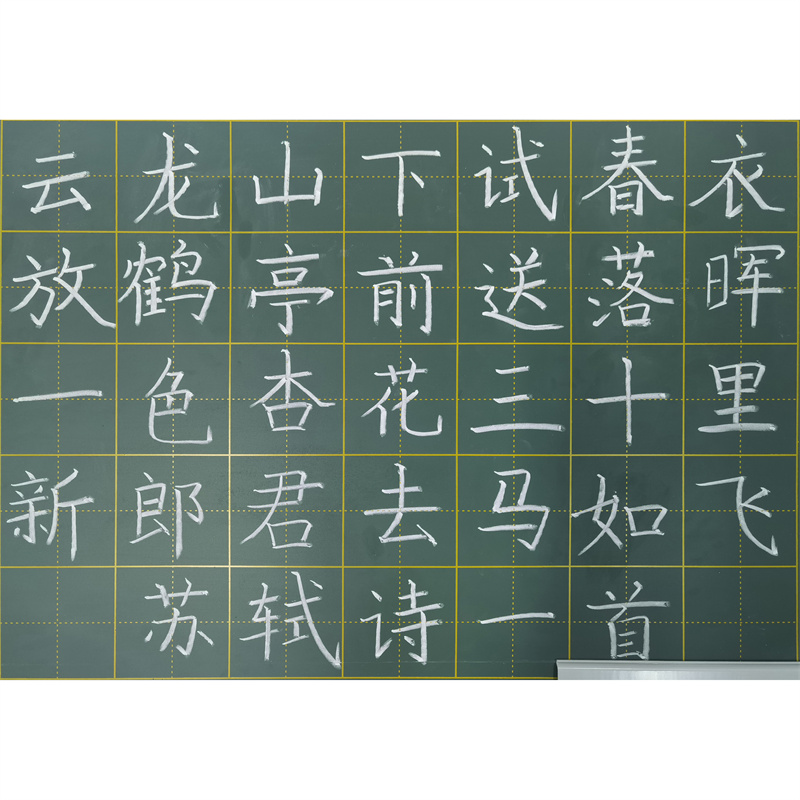 云龙山下试春衣
放鹤亭前送落晖
一色杏花三十里
新郎君去马如飞
苏轼诗一首